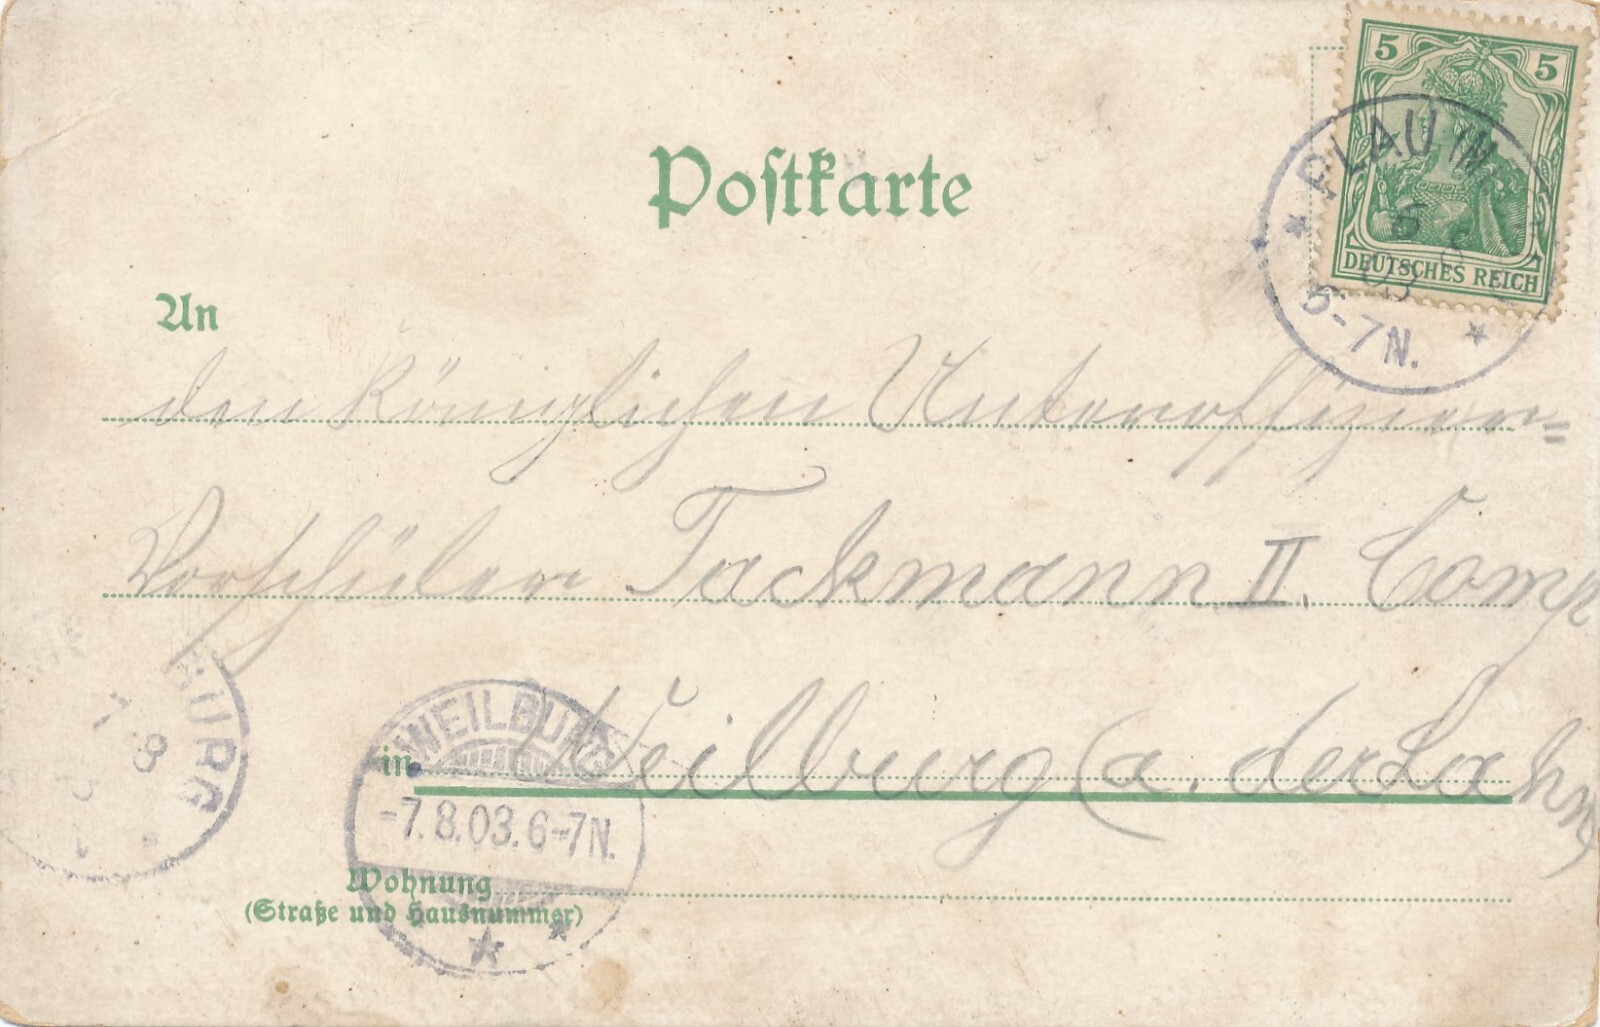 5 5
DEUTSCHES REICH
PLAU IN
5 8
03
5-7N.
Postkarte
An
den Königlichen Unteroffizier=
Vorschüler Tackmann II. Comp
in Weilburg (a. der Lahn)
WEILBURG
-7.8.03.6-7N.
BURG
7 8
Wohnung
(Straße und Hausnummer)